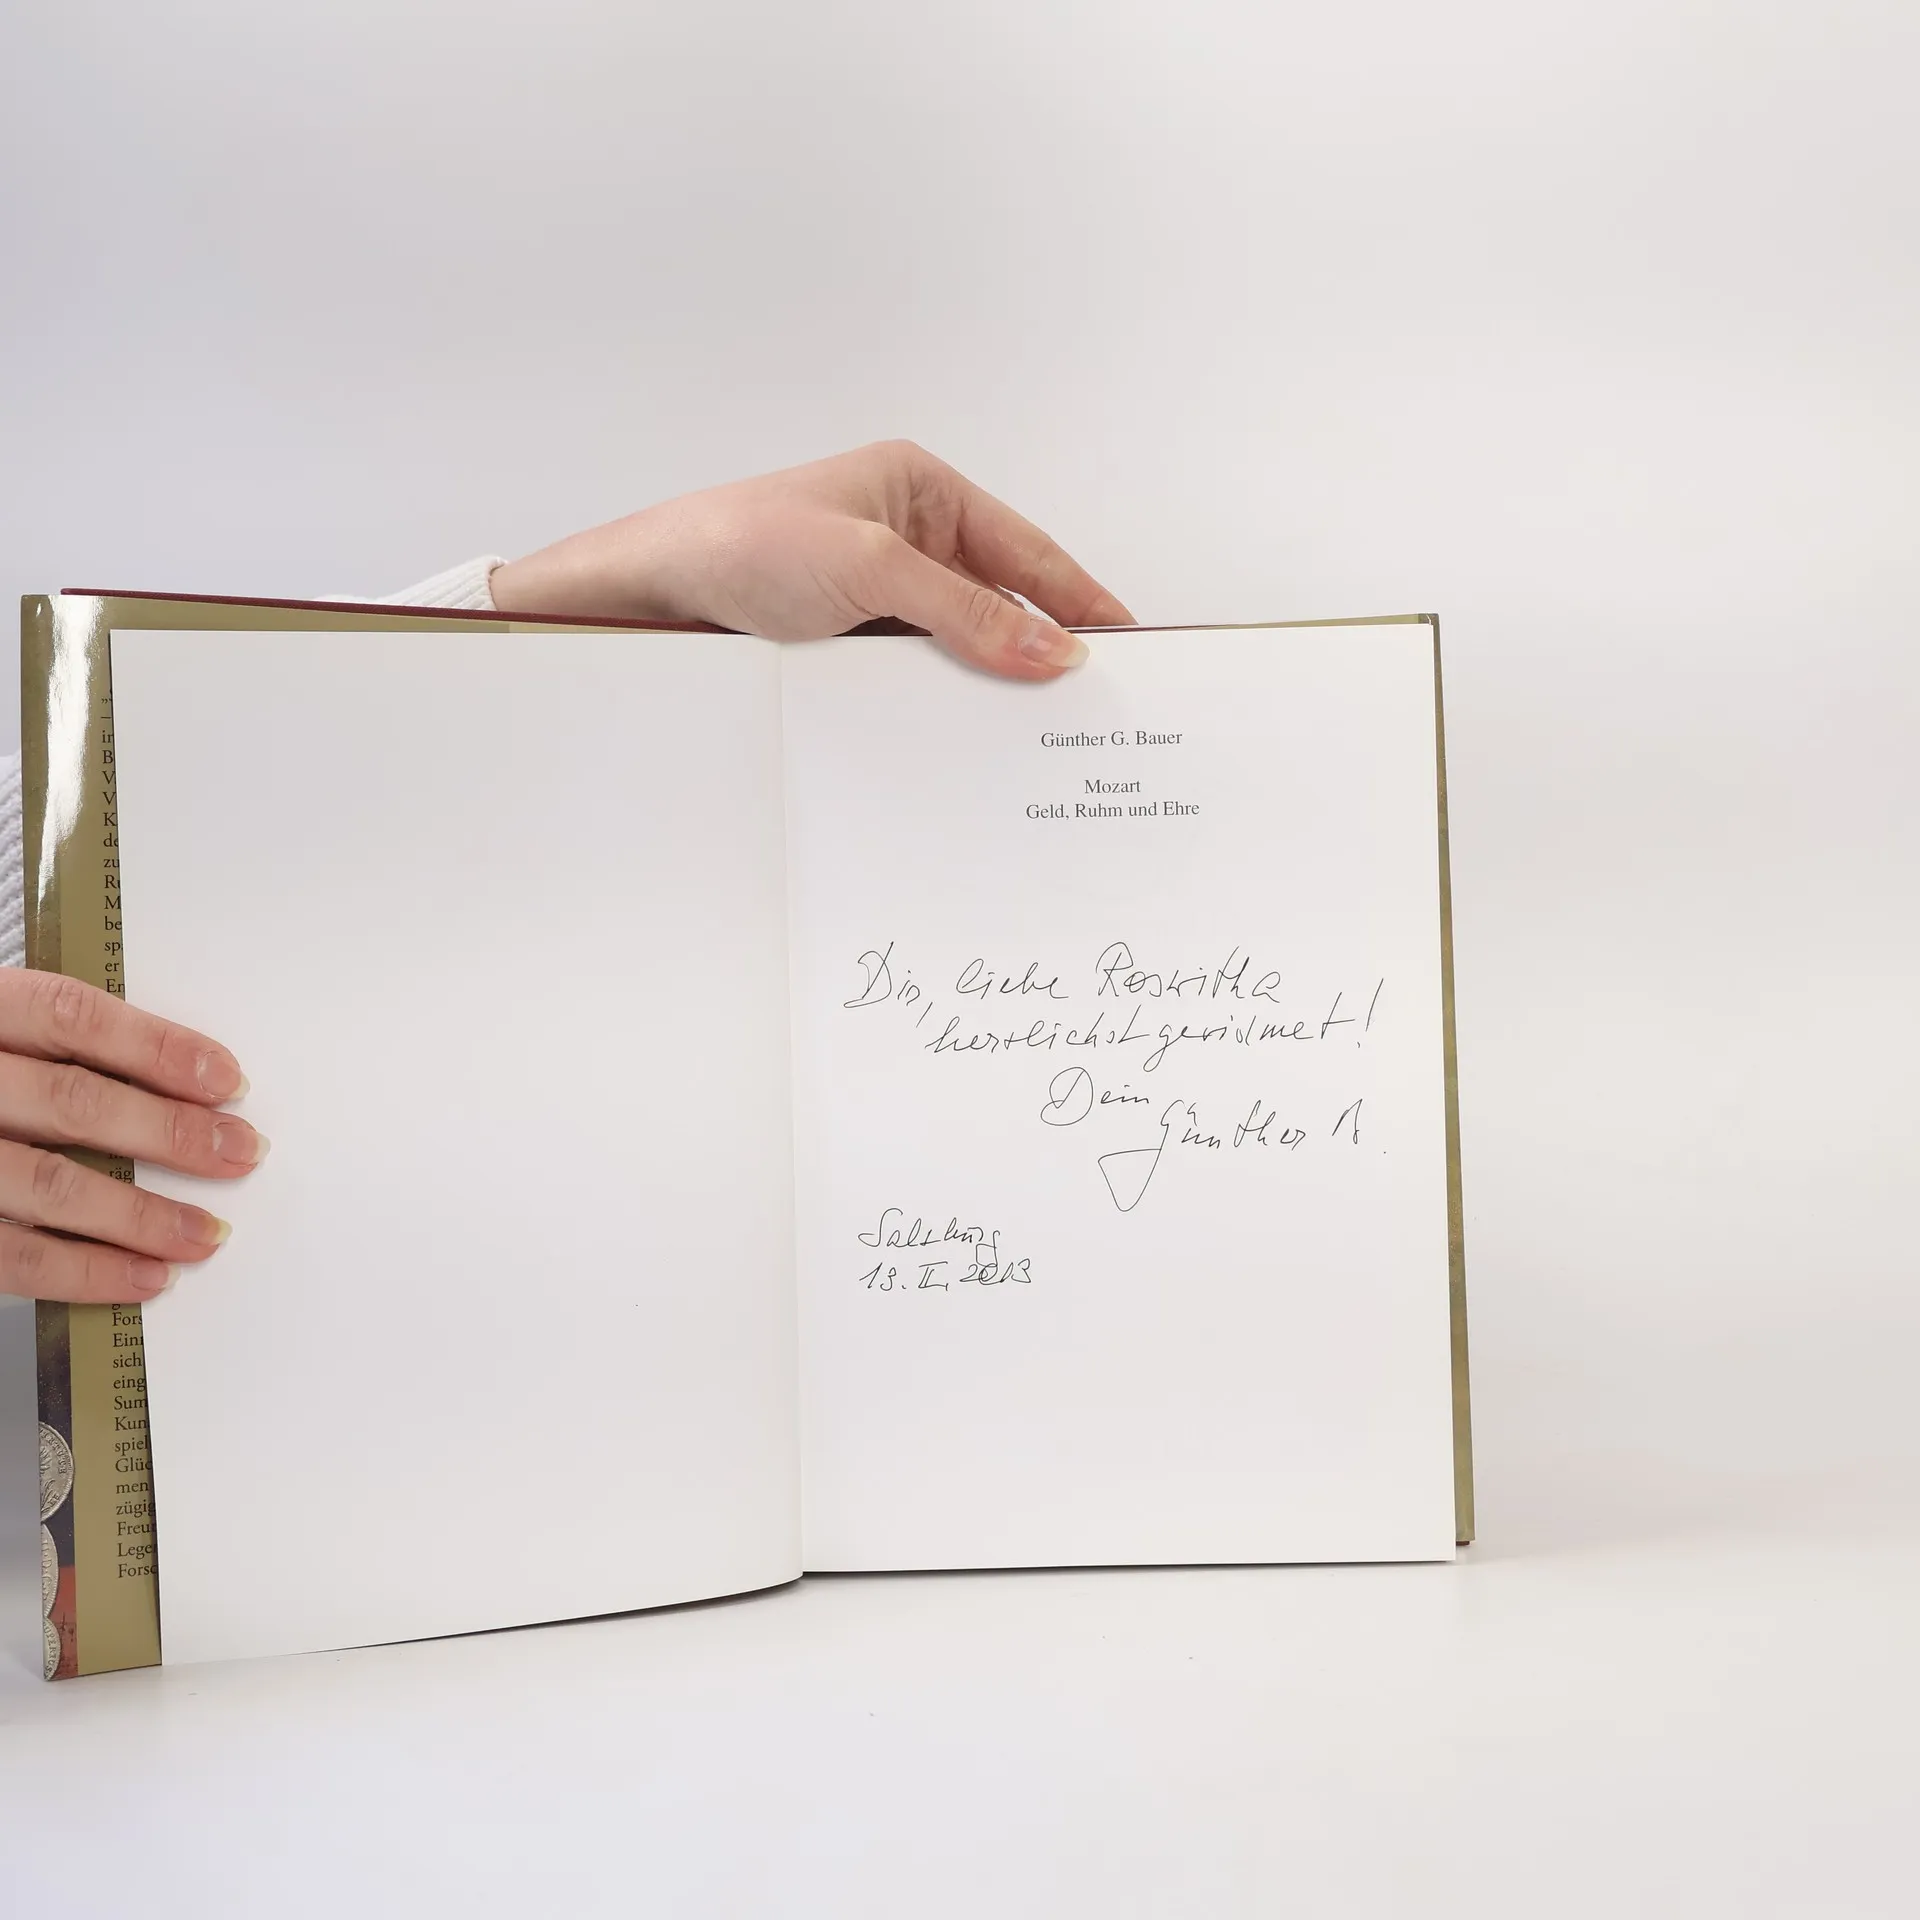 Günther G. Bauer
Mozart
Geld, Ruhm und Ehre
Dir, liebe Roswitha
herzlichst gewidmet!
Dein
Günther B.
Salzburg
13. II. 2013
B
V
V
K
de
zu
R
M
be
sp
er
En
räg
g
Fors
Ein
sich
eing
Sum
Kun
spiel
Glüc
men
zügig
Freu
Lege
Forsc